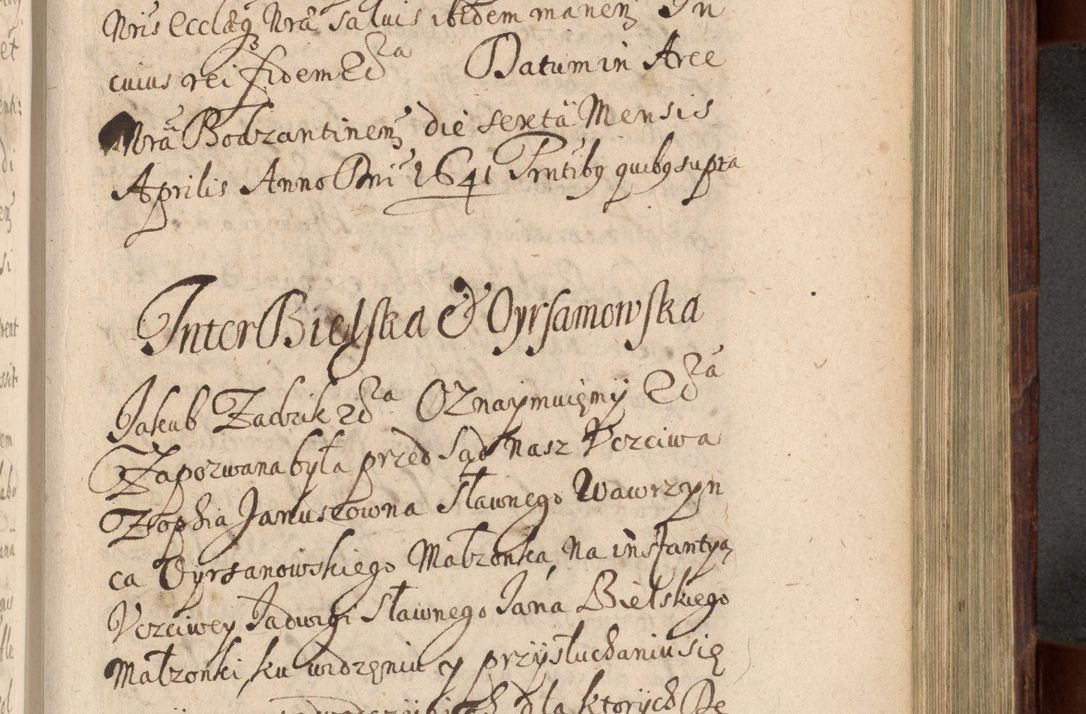 Nris Ecclæq Nrã saluis ibidem manen In
cuius rei fidem &ca Datum in Arce
Nrã Bodzantinen die sexta Mensis
Aprilis Anno Dni 1641 Prntibq quibq supta
Inter Bielska & Dyrsamowska
Jakub Zadzik &ca Oznaymuięmy &ca
Zapozwana była przed Sąd nasz Vczciwa
Zophia Januszowna Sławnego Wawrzyn
ca Dyrsanowskiego Małzonka, Na instantyą
Vczciwey Jadwigi Sławnego Jana Bielskiego
Małzonki, ku widzęniu y przysłuchaniu się
dla ktorych De